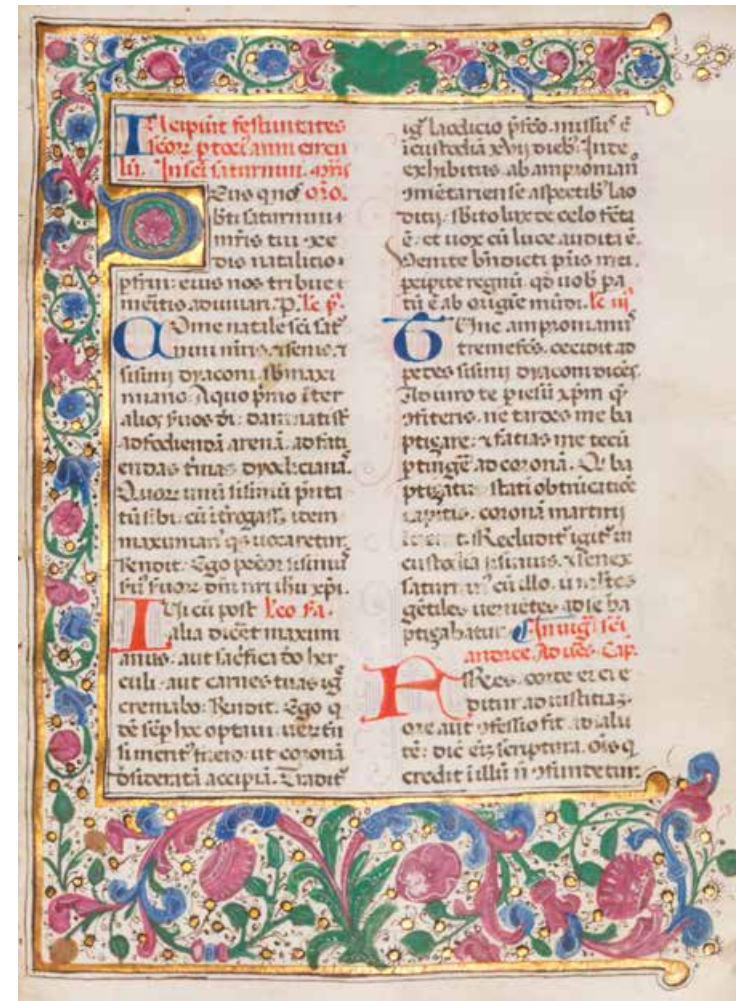 Incipiunt festiuitates
scor p toci anni circu
li. In sci saturnini. mris
Deus qui nos oro.
bti saturnini
mris tui xce
dis natalitio
pfrui: eius nos tribue
meritis adiuuari. P. le p.
Ad me natale sci sat
nini mris. & senis. &
sisinij dyaconi. sb maxi
miano. A quo pmo iter
alios suos di: damnati st
ad fodiendā arenā. ad faci
endas tmas dyoclicianas.
Quor unū sisinū pnta
tū sibi. cū itrogass item
maximian qs uocaretur.
Rendit. Ego pecor sisinius
suus suor dni nri ihu xpi.
Ipsi cū post leo sa.
talia dicēt maximi
anus. aut sacrifica do her
culi. aut carnes tuas ig
cremabo: Rendit. Ego q
dē sēp hoc optaui. uer tn
si merit fuero. ut coronā
desideratā accipiā. Tradit
ig laodicio pfco. missus ē
i custodiā xvij dieb. Inde
exhibitus. ab ampronian
omētariense aspectib lao
dicij. sbito lux de celo fcta
ē. et uox cū luce audita ē.
Venite bndicti pris mei.
pcipite regnū qd uob pa
tū ē ab origīe mūdi. le iij
Tunc ampronianus
tremefcs. cecidit ad
pedes sisinij dyaconi dices.
Adiuro te p iesū xpm q
ofiteris. ne tardes me ba
ptizare. & facias me tecū
ptingē ad coronā. Q ba
ptizatus. stati obtruncatiōe
capitis. coronā martirij
Recludit igit in
custodia sisinius. & senex
saturnin cū illo.
gētiles ueniētes ad se ba
ptizabatur. In uigl sci
andree Ad ues. Cap.
Fratres. corde eī cre
ditur ad iustitiaz.
ore aut ofessio fit ad salu
tē: dic eī scriptura. ois q
credit i illū n ofundetur.